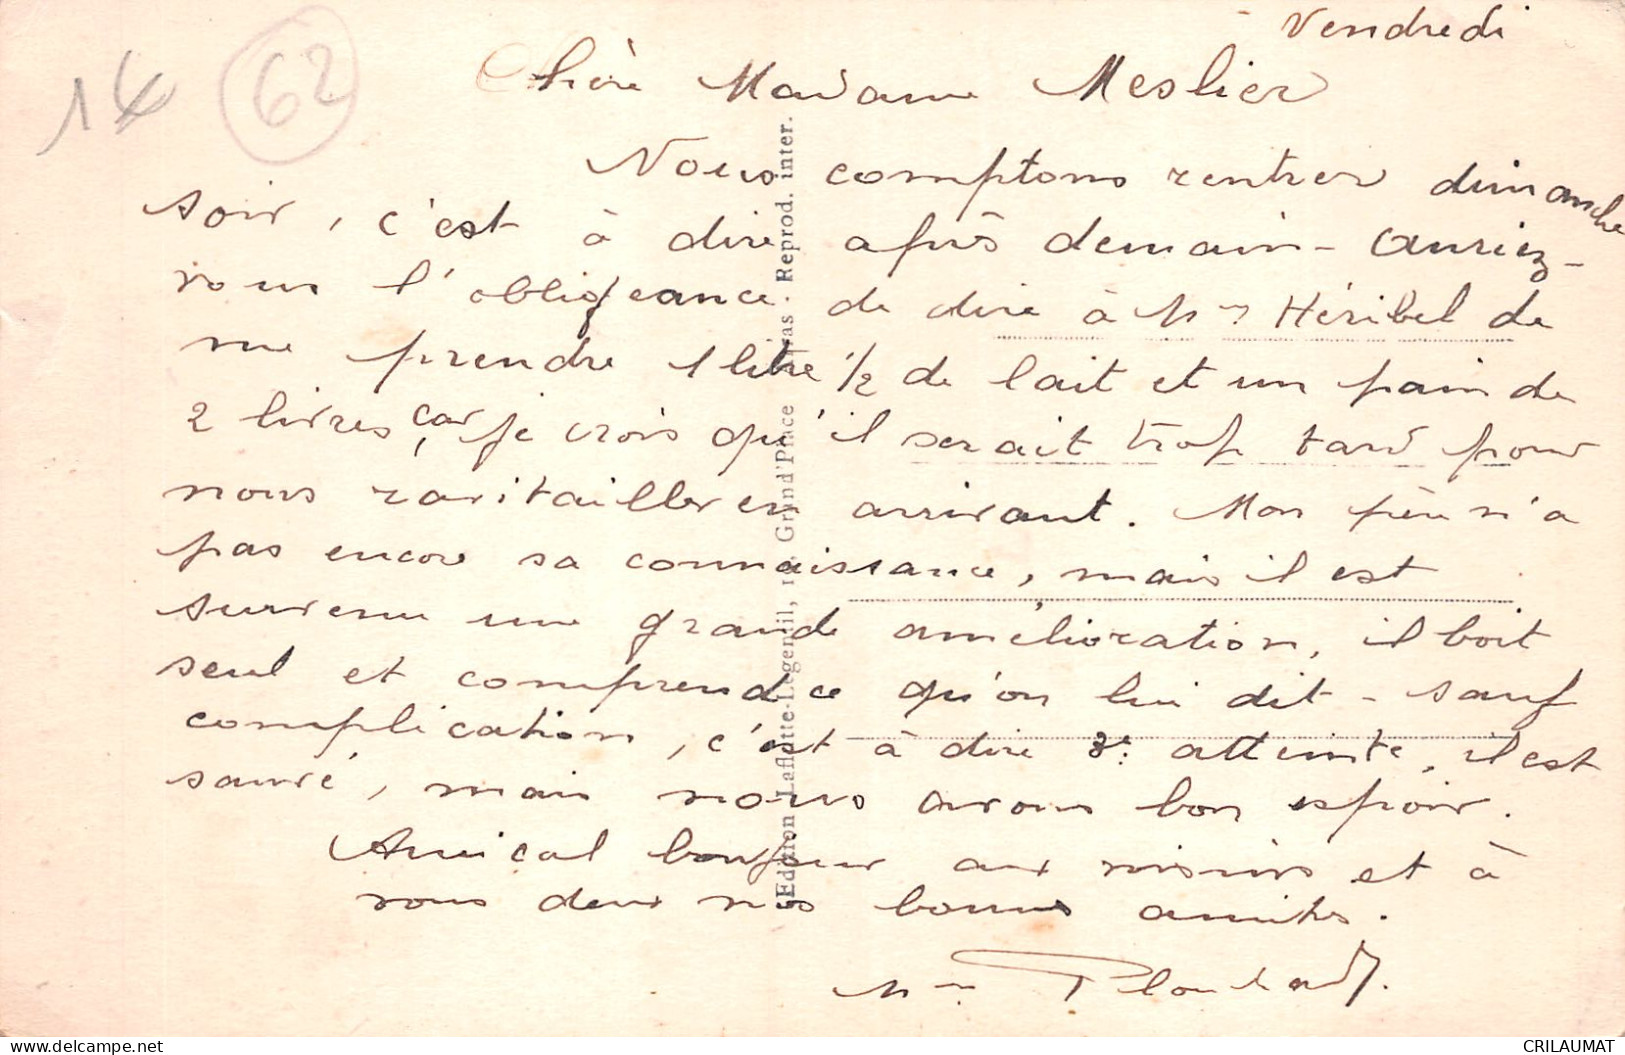 Vendredi
14
62
Chère Madame Meslier
Nous comptons rentrer dimanche
soir, c'est à dire après demain - Auriez-
vous l'obligeance de dire à Mme Héribel de
me prendre 1 litre 1/2 de lait et un pain de
2 livres, car je crois qu'il serait trop tard pour
nous ravitailler en arrivant. Mon père n'a
pas encore sa connaissance, mais il est
survenu une grande amélioration, il boit
seul et comprend ce qu'on lui dit - sauf
complication, c'est à dire 3e: atteinte, il est
sauvé, mais nous avons bon espoir.
Amical bonjour aux voisins et à
vous deux nos bonnes amitiés.
Mme
Edition Laflutte-Legentil, Grand'Place Arras. Reprod. inter.
www.delcampe.net
CRILAUMAT